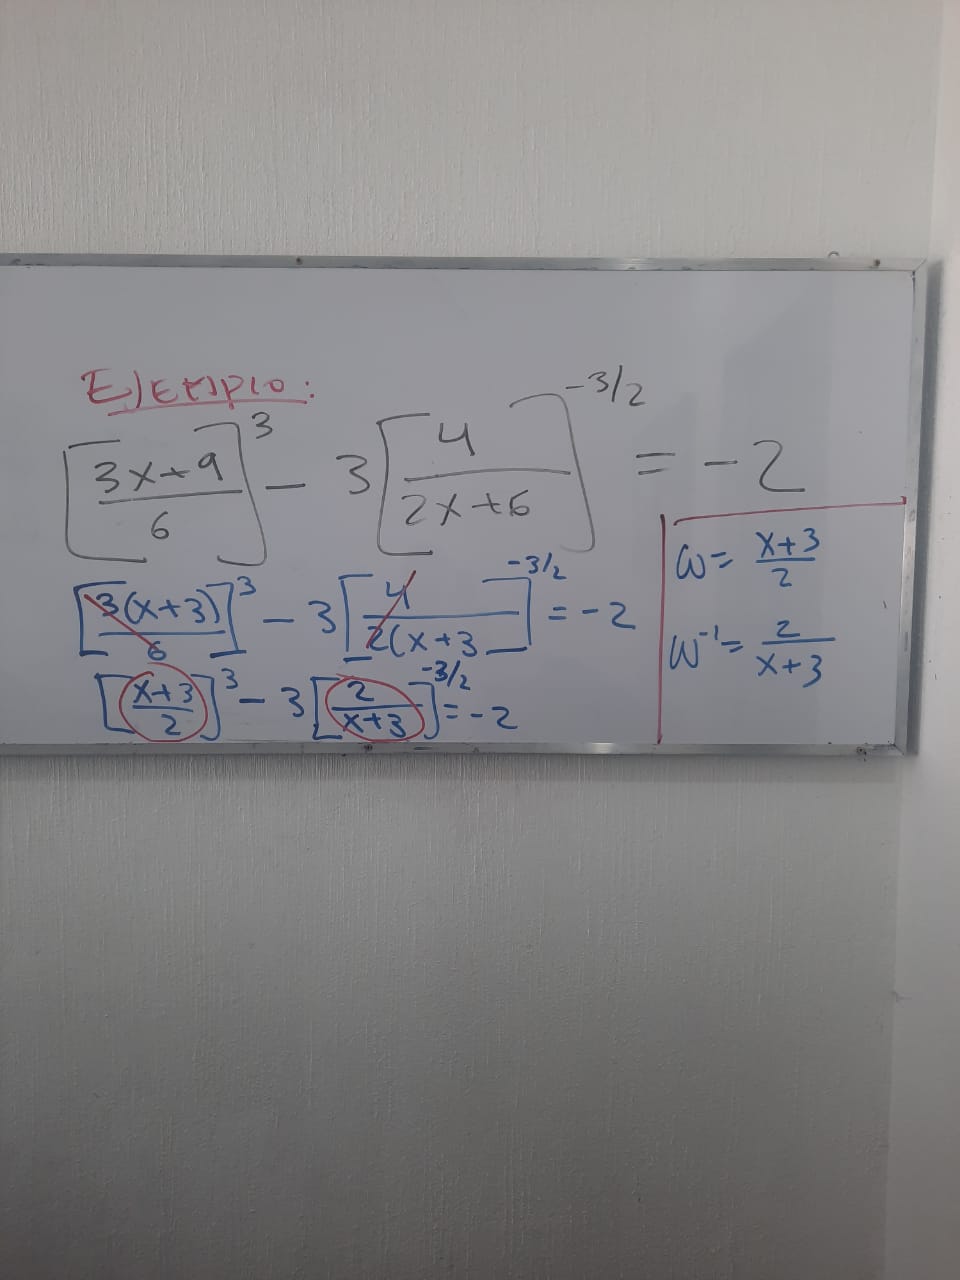 Ejemplo:
[(3x+9)/6]^3 - 3[4/(2x+6)]^(-3/2) = -2
[3(x+3)/6]^3 - 3[4/2(x+3]^(-3/2) = -2
[(x+3)/2]^3 - 3[2/(x+3)]^(-3/2) = -2
ω = (x+3)/2
ω^-1 = 2/(x+3)